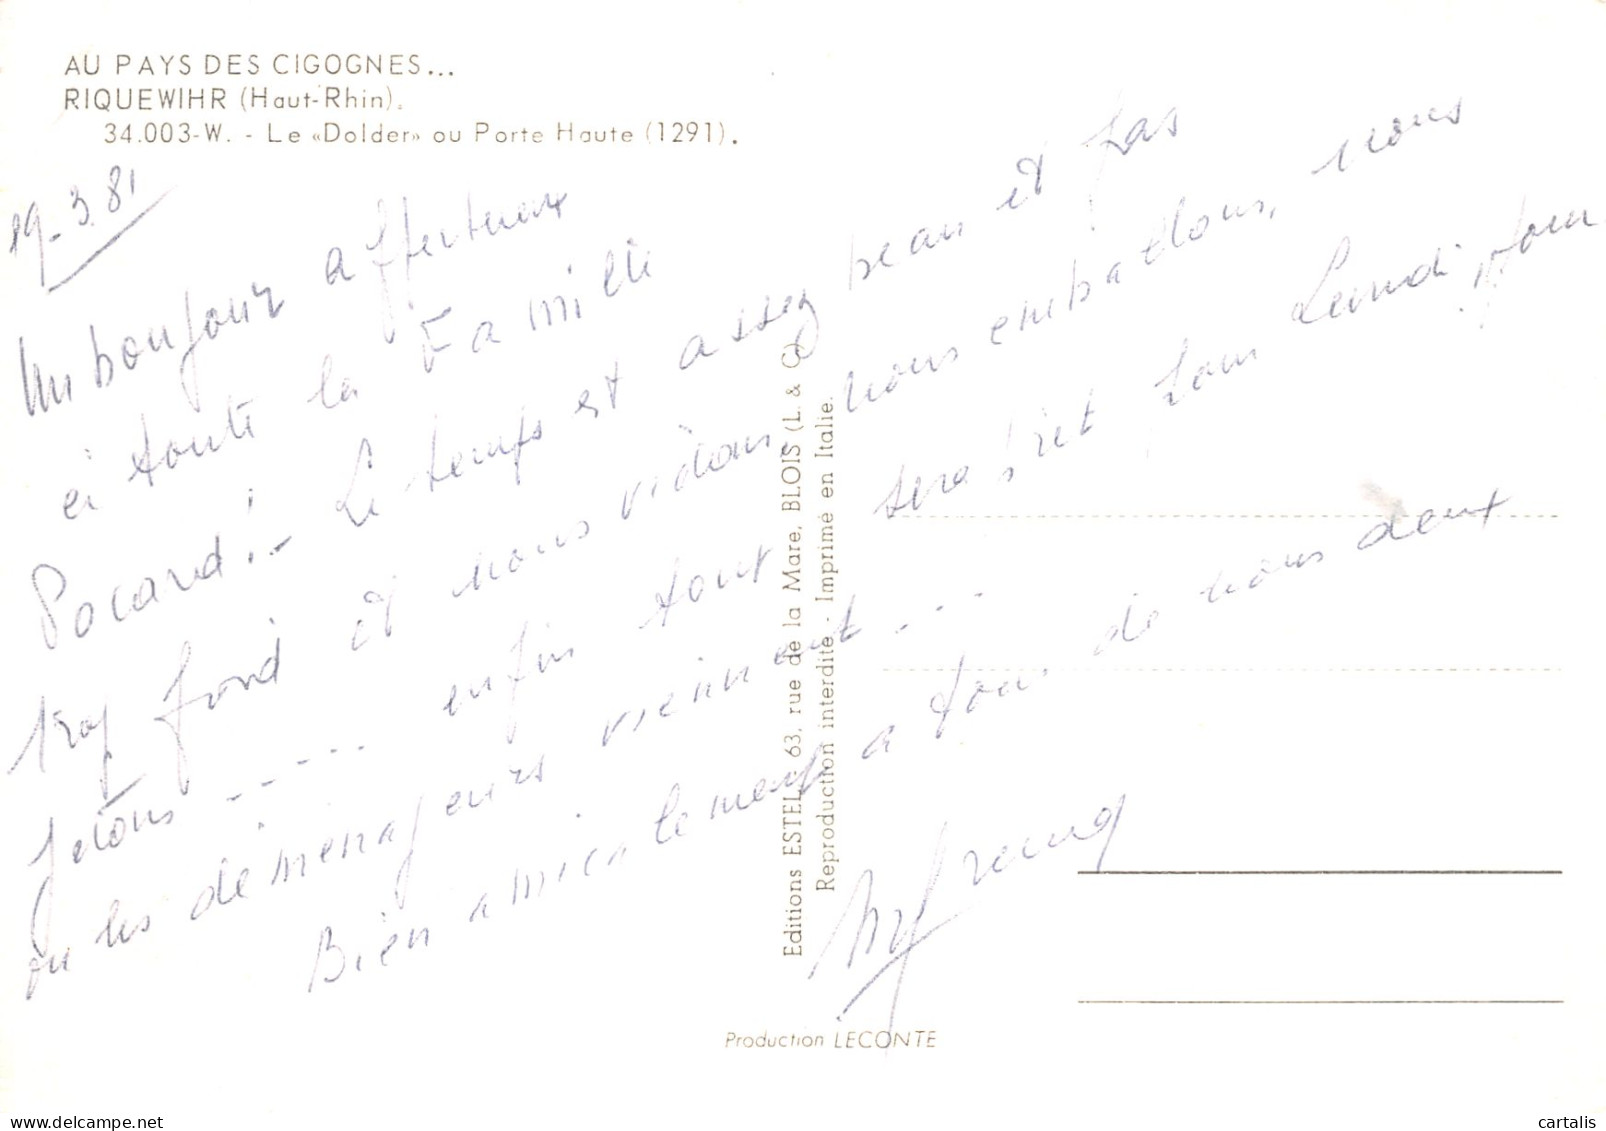 AU PAYS DES CIGOGNES...
RIQUEWIHR (Haut-Rhin).
34.003-W. - Le «Dolder» ou Porte Haute (1291).
19-3.81
Un bonjour affectueux
à toute la Famille
Pocard!- Le temps est assez beau et pas
trop froid et nous vidons, nous emballons, nous
jetons ----- enfin tout sera prêt pour Lundi, jour
où les déménageurs viennent ---
Bien amicalement a tous de nous deux
Editions ESTEL, 63, rue de la Mare, BLOIS (L. & C.)
Reproduction interdite - Imprimé en Italie.
Production LECONTE
cartalis